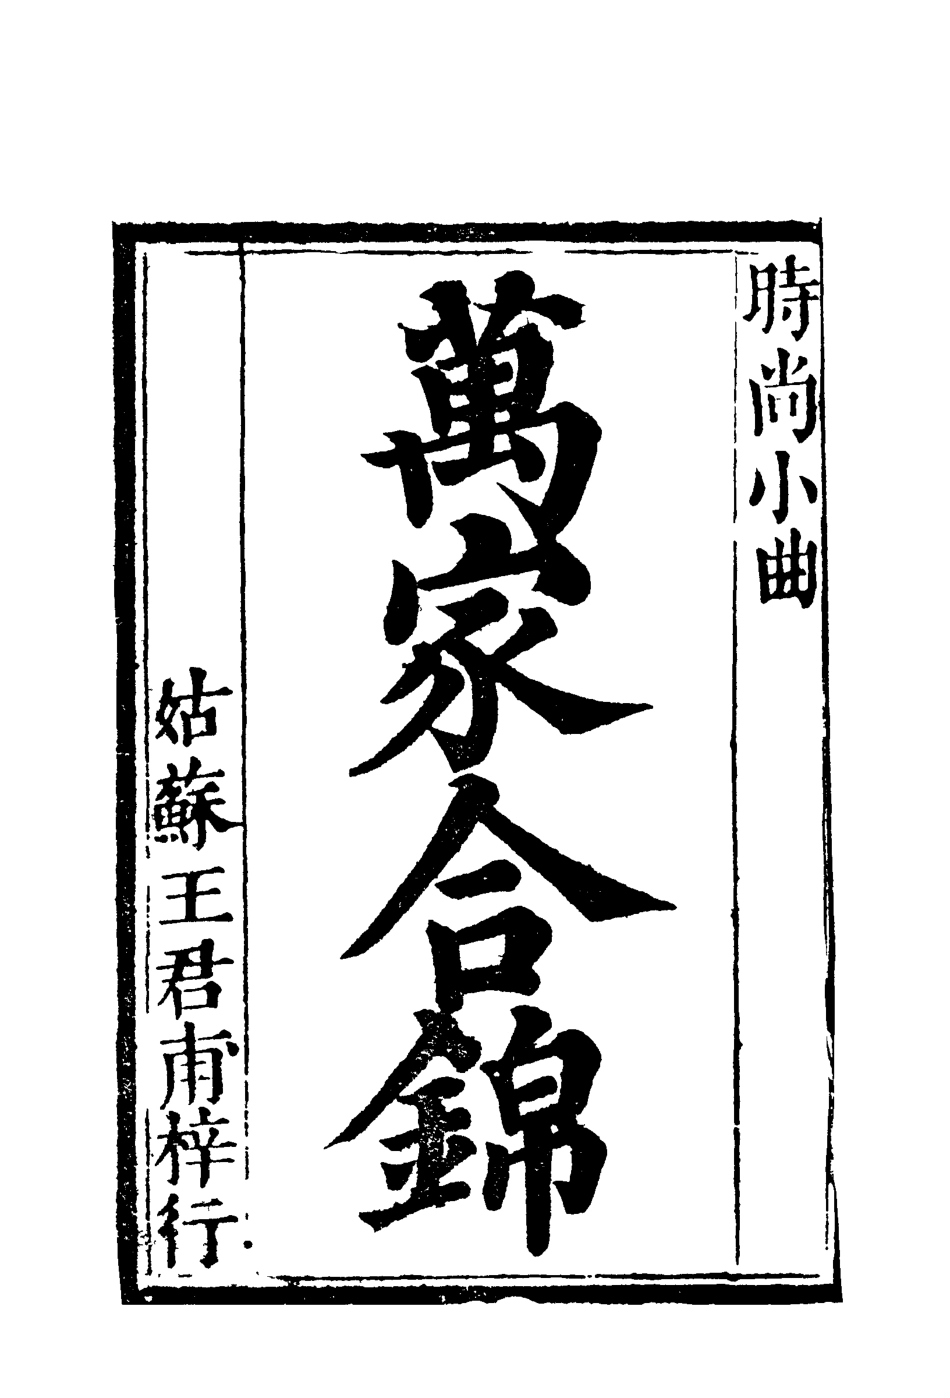 時尚小曲
萬家合錦
姑蘇王君甫梓行